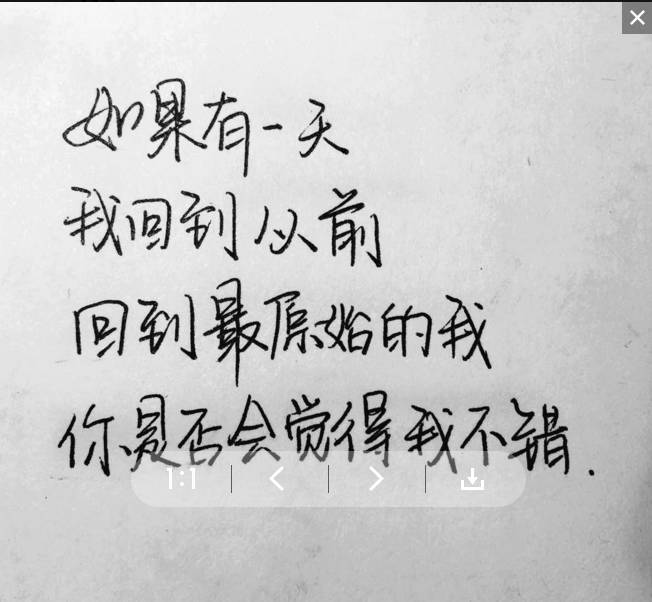 如果有一天
我回到从前
回到最原始的我
你是否会觉得我不错.
1:1